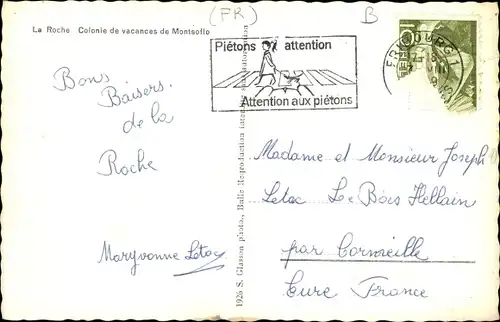 (FR)
B
La Roche Colonie de vacances de Montsoflo
Piétons attention
Attention aux piétons
FRIBOURG 1
Bons
Baisers
de la
Roche
Maryvonne Letac
1926 S. Glasson photo, Bulle Reproduction
Madame et Monsieur Joseph
Letac Le Bois Hellain
par Cormeille
Eure France